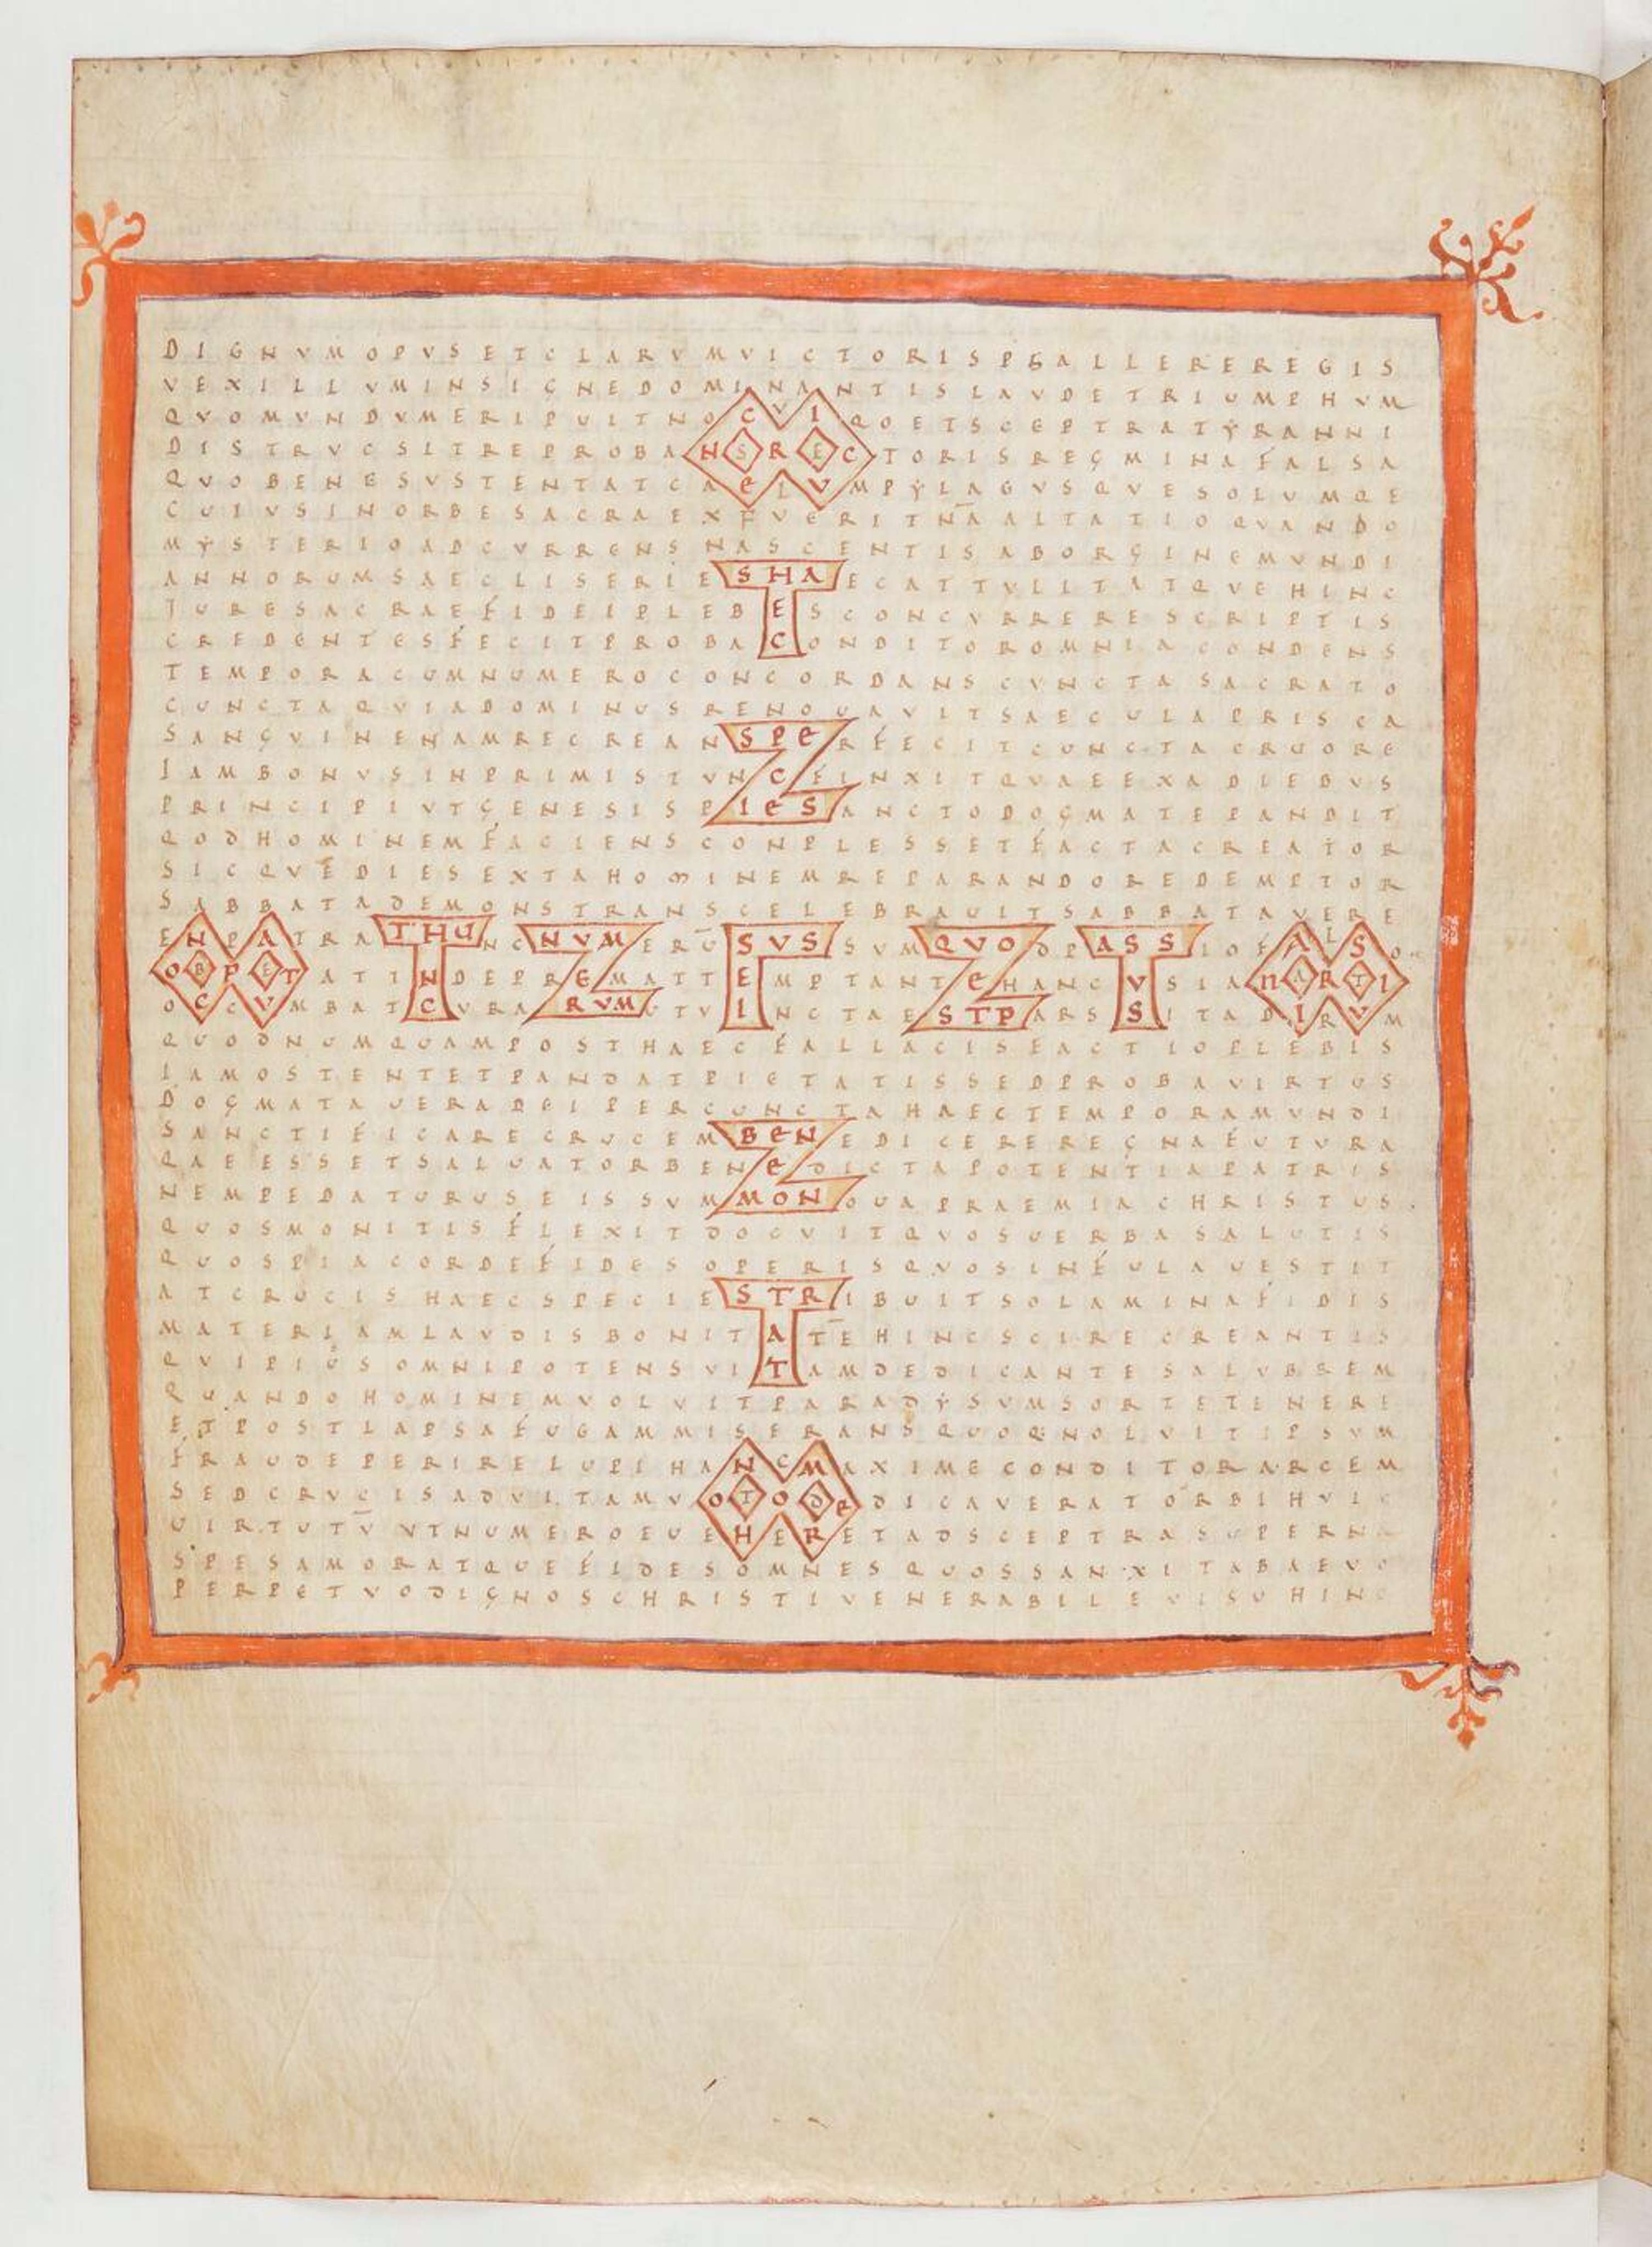 DIGNVMOPVSETCLARVMVICTORISPSALLEREREGIS
VEXILLVMINSIGNEDOMINANTISLAVDETRIUMPHVM
QVOMVNDVMERIPUITNOCVIQOETSCEPTRATẎRANNI
DISTRVCSITREPROBANSRECTORISREGMINAFALSA
QVOBENESVSTENTATCAELVMPẎLAGVSQVESOLUMQE
CUIVSINORBESACRAEXFVERITN̄AALTATIOQVANDO
MẎSTERIOADCVRRENSNASCENTISABORGINEMVNDI
ANNORUMSAECLISERIESHAECATTVLITATQVEHINC
IURESACRAEFIDEIPLEBESCONCVRRERESCRIPTIS
CREDENTESFECITPROBACONDITOROMNIACONDENS
TEMPORACUMNUMEROCONCORDANSCVNCTASACRATO
CUNCTAQVIADOMINUSRENOUAVITSAECULAPRISCA
SANGVINENAMRECREANSPERFECITCUNCTACRUORE
IAMBONVSINPRIMISTVNCFINXITQVAEEXADIEBVS
PRINCIPIVTGENESISPIESANCTODOGMATEPANDIT
QODHOMINEMFACIENSCONPLESSETFACTACREATOR
SICQVEDIESEXTAHOMINEMREPARANDOREDEMPTOR
SABBATADEMONSTRANSCELEBRAUITSABBATAVERE
ENPATRATHUNCNVMERŪSVSSVMQVODPASSIOFALSO
OBPETATINDEPREMATTEMPTANTEHANCVSIANARTI
OCCVMBATCVRARVMUTVINCTAESTPARSITADIRVM
QUODNUMQUAMPOSTHAECFALLACISFACTIOPLEBIS
IAMOSTENTETPANDATPIETATISSEDPROBAVIRTUS
DOGMATAUERADEIPERCUNCTAHAECTEMPORAMVNDI
SANCTIFICARECRUCEMBENEDICEREREGNAFUTVRA
QAEESSETSALUATORBENEDICTAPOTENTIAPATRIS
NEMPEDATURUSEISSVMMONOUAPRAEMIACHRISTUS
QUOSMONITISFLEXITDOCVITQVOSUERBASALUTIS
QUOSPIACORDEFIDESOPERISQVOSINFULAUESTIT
ATCRUCISHAECSPECIESTRIBUITSOLAMINAFIDIS
MATERIAMLAVDISBONITATEHINCSCIRECREANTIS
QVIPIUSOMNIPOTENSVITAMDEDICANTESALVBREM
QUANDOHOMINEMVOLVITPARADẎSVMSORTETENERE
ETPOSTLAPSAFUGAMMISERANSQUOQNOLVITIPSVM
FRAUDEPERIRELUPIHANCMAXIMECONDITORARCEM
SEDCRVCISADVITAMVOTODEDICAVERATORBIHVIC
UIRTUTV̄VTNUMEROEUEHERETADSCEPTRASUPERNA
SPESAMORATQUEFIDESOMNESQUOSSANXITABAEVO
PERPETVODIGNOSCHRISTIVENERABILEVISUHINC